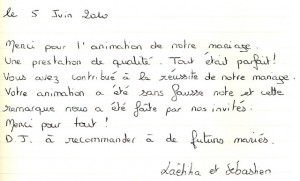 le 5 Juin 2010
Merci pour l'animation de notre mariage.
Une prestation de qualité. Tout était parfait!
Vous avez contribué à la réussite de notre mariage.
Votre animation a été sans fausse note et cette
remarque nous a été faite par nos invités.
Merci pour tout!
D.J. à recommander à de futurs mariés.
et Sébastien